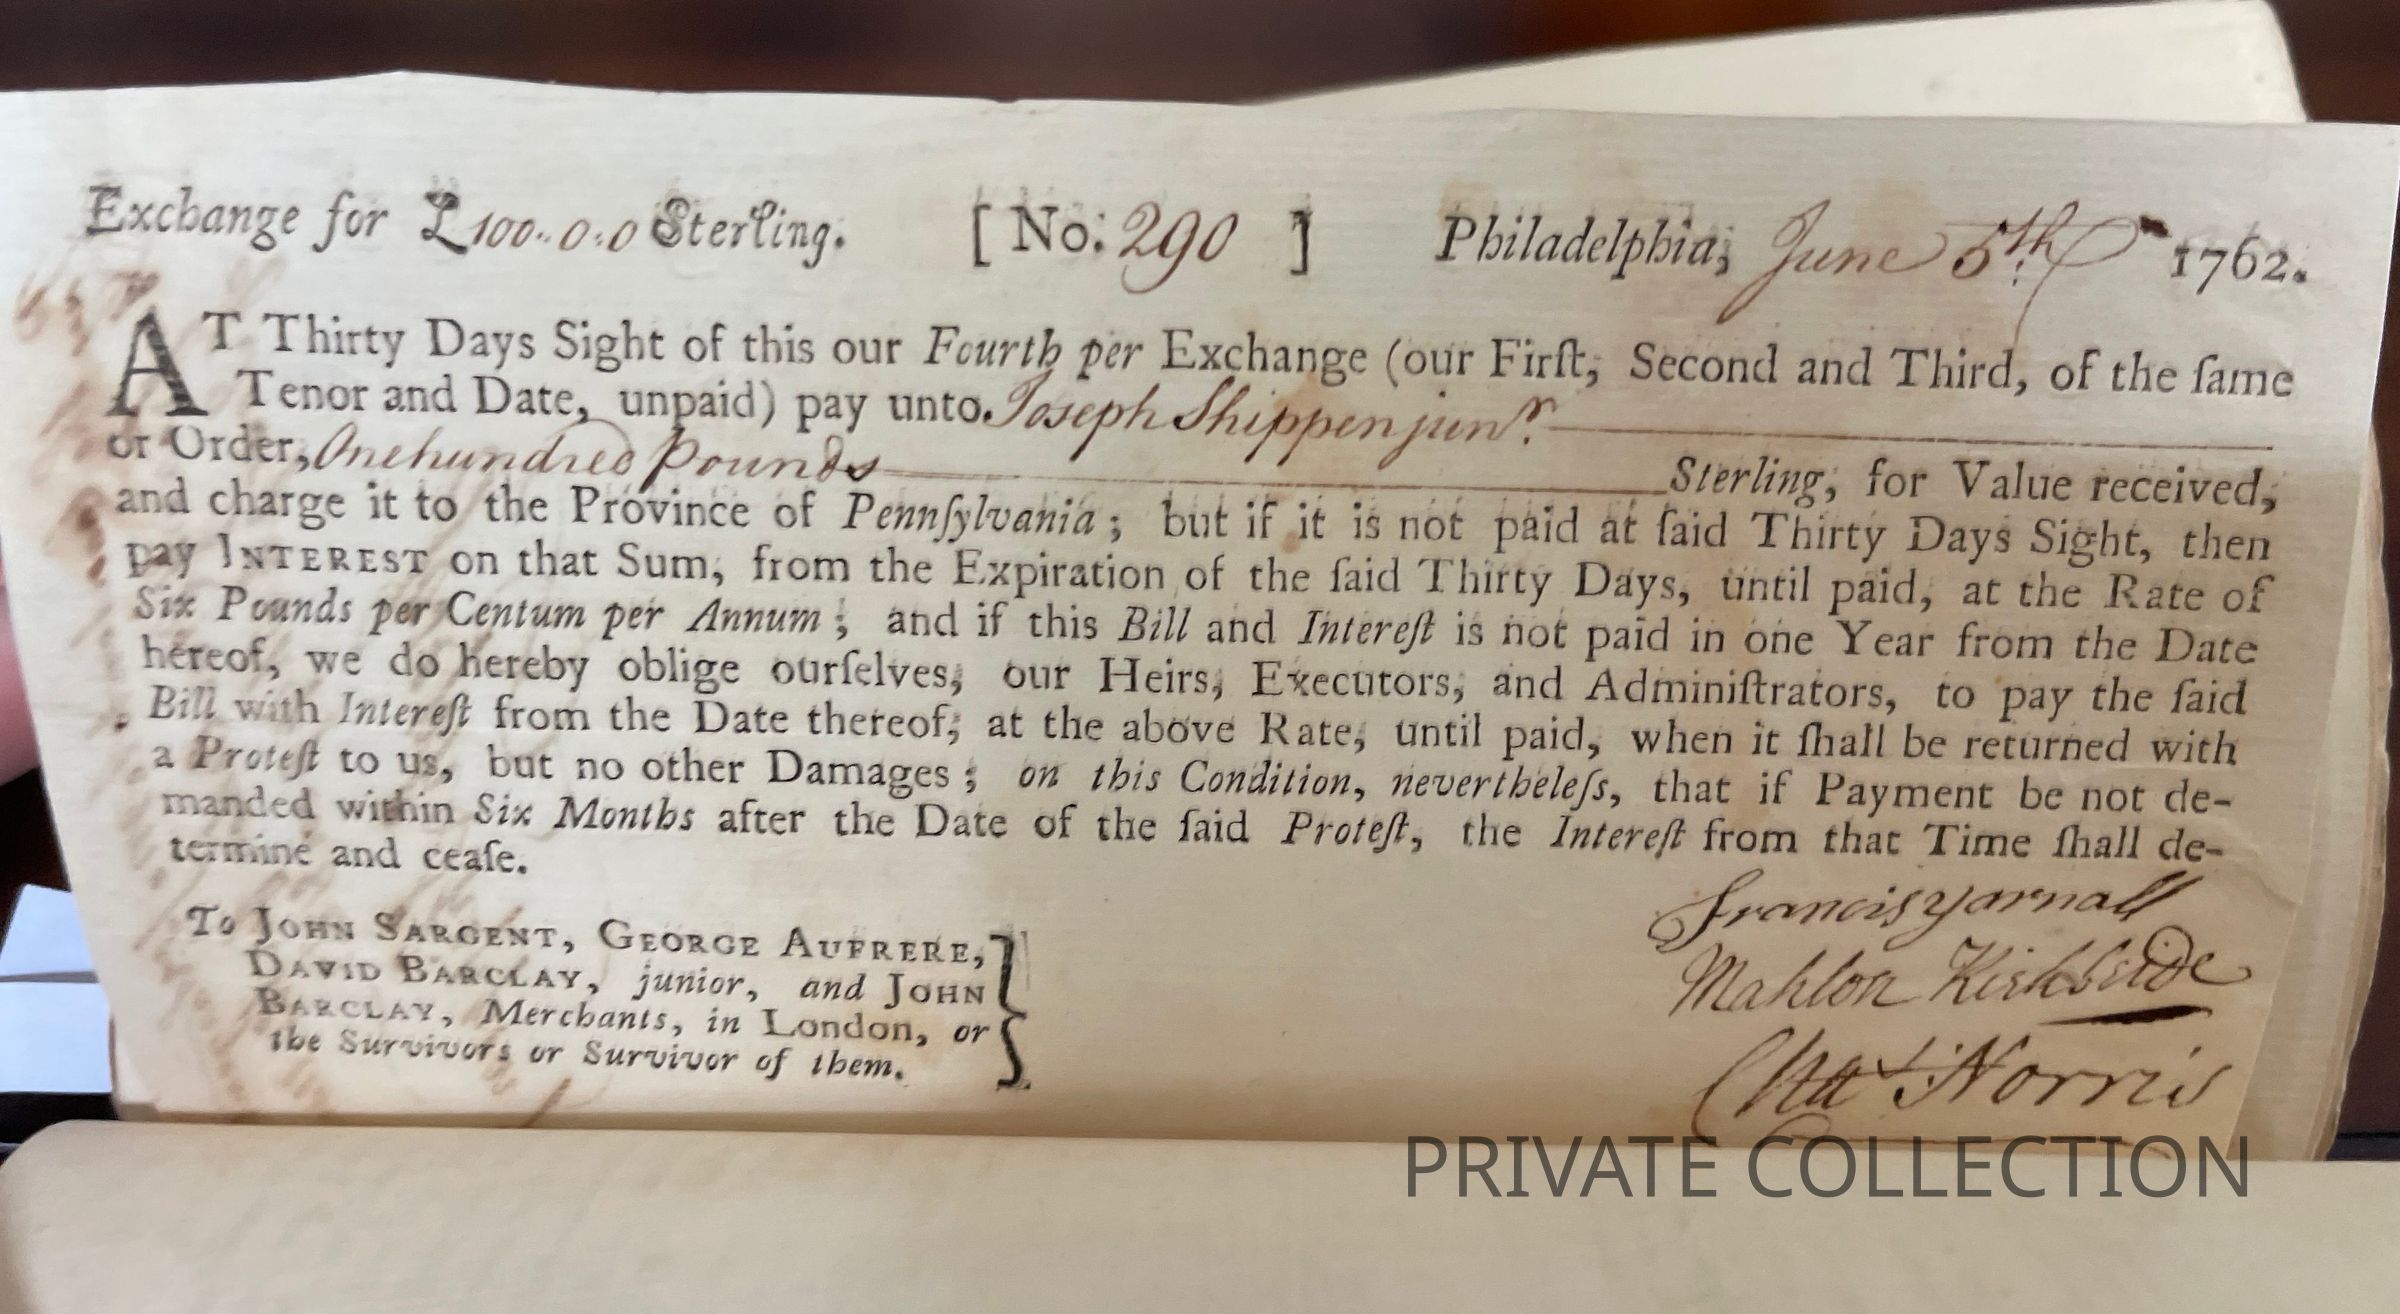 Exchange for £100..0:0 Sterling. [ No: 290 ] Philadelphia, June 5th. 1762.
AT Thirty Days Sight of this our Fourth per Exchange (our Firſt, Second and Third, of the ſame
Tenor and Date, unpaid) pay unto Joseph Shippen junr.
or Order, One hundred Pounds Sterling, for Value received,
and charge it to the Province of Pennſylvania; but if it is not paid at ſaid Thirty Days Sight, then
pay INTEREST on that Sum, from the Expiration of the ſaid Thirty Days, until paid, at the Rate of
Six Pounds per Centum per Annum; and if this Bill and Intereſt is not paid in one Year from the Date
hereof, we do hereby oblige ourſelves, our Heirs, Executors, and Adminiſtrators, to pay the ſaid
Bill with Intereſt from the Date thereof, at the above Rate, until paid, when it ſhall be returned with
a Proteſt to us, but no other Damages; on this Condition, nevertheleſs, that if Payment be not de-
manded within Six Months after the Date of the ſaid Proteſt, the Intereſt from that Time ſhall de-
termine and ceaſe.
To JOHN SARGENT, GEORGE AUFRERE,
DAVID BARCLAY, junior, and JOHN
BARCLAY, Merchants, in London, or
the Survivors or Survivor of them.
Francis Yarnall
Mahlon Kirkbride
Chas Norris
PRIVATE COLLECTION